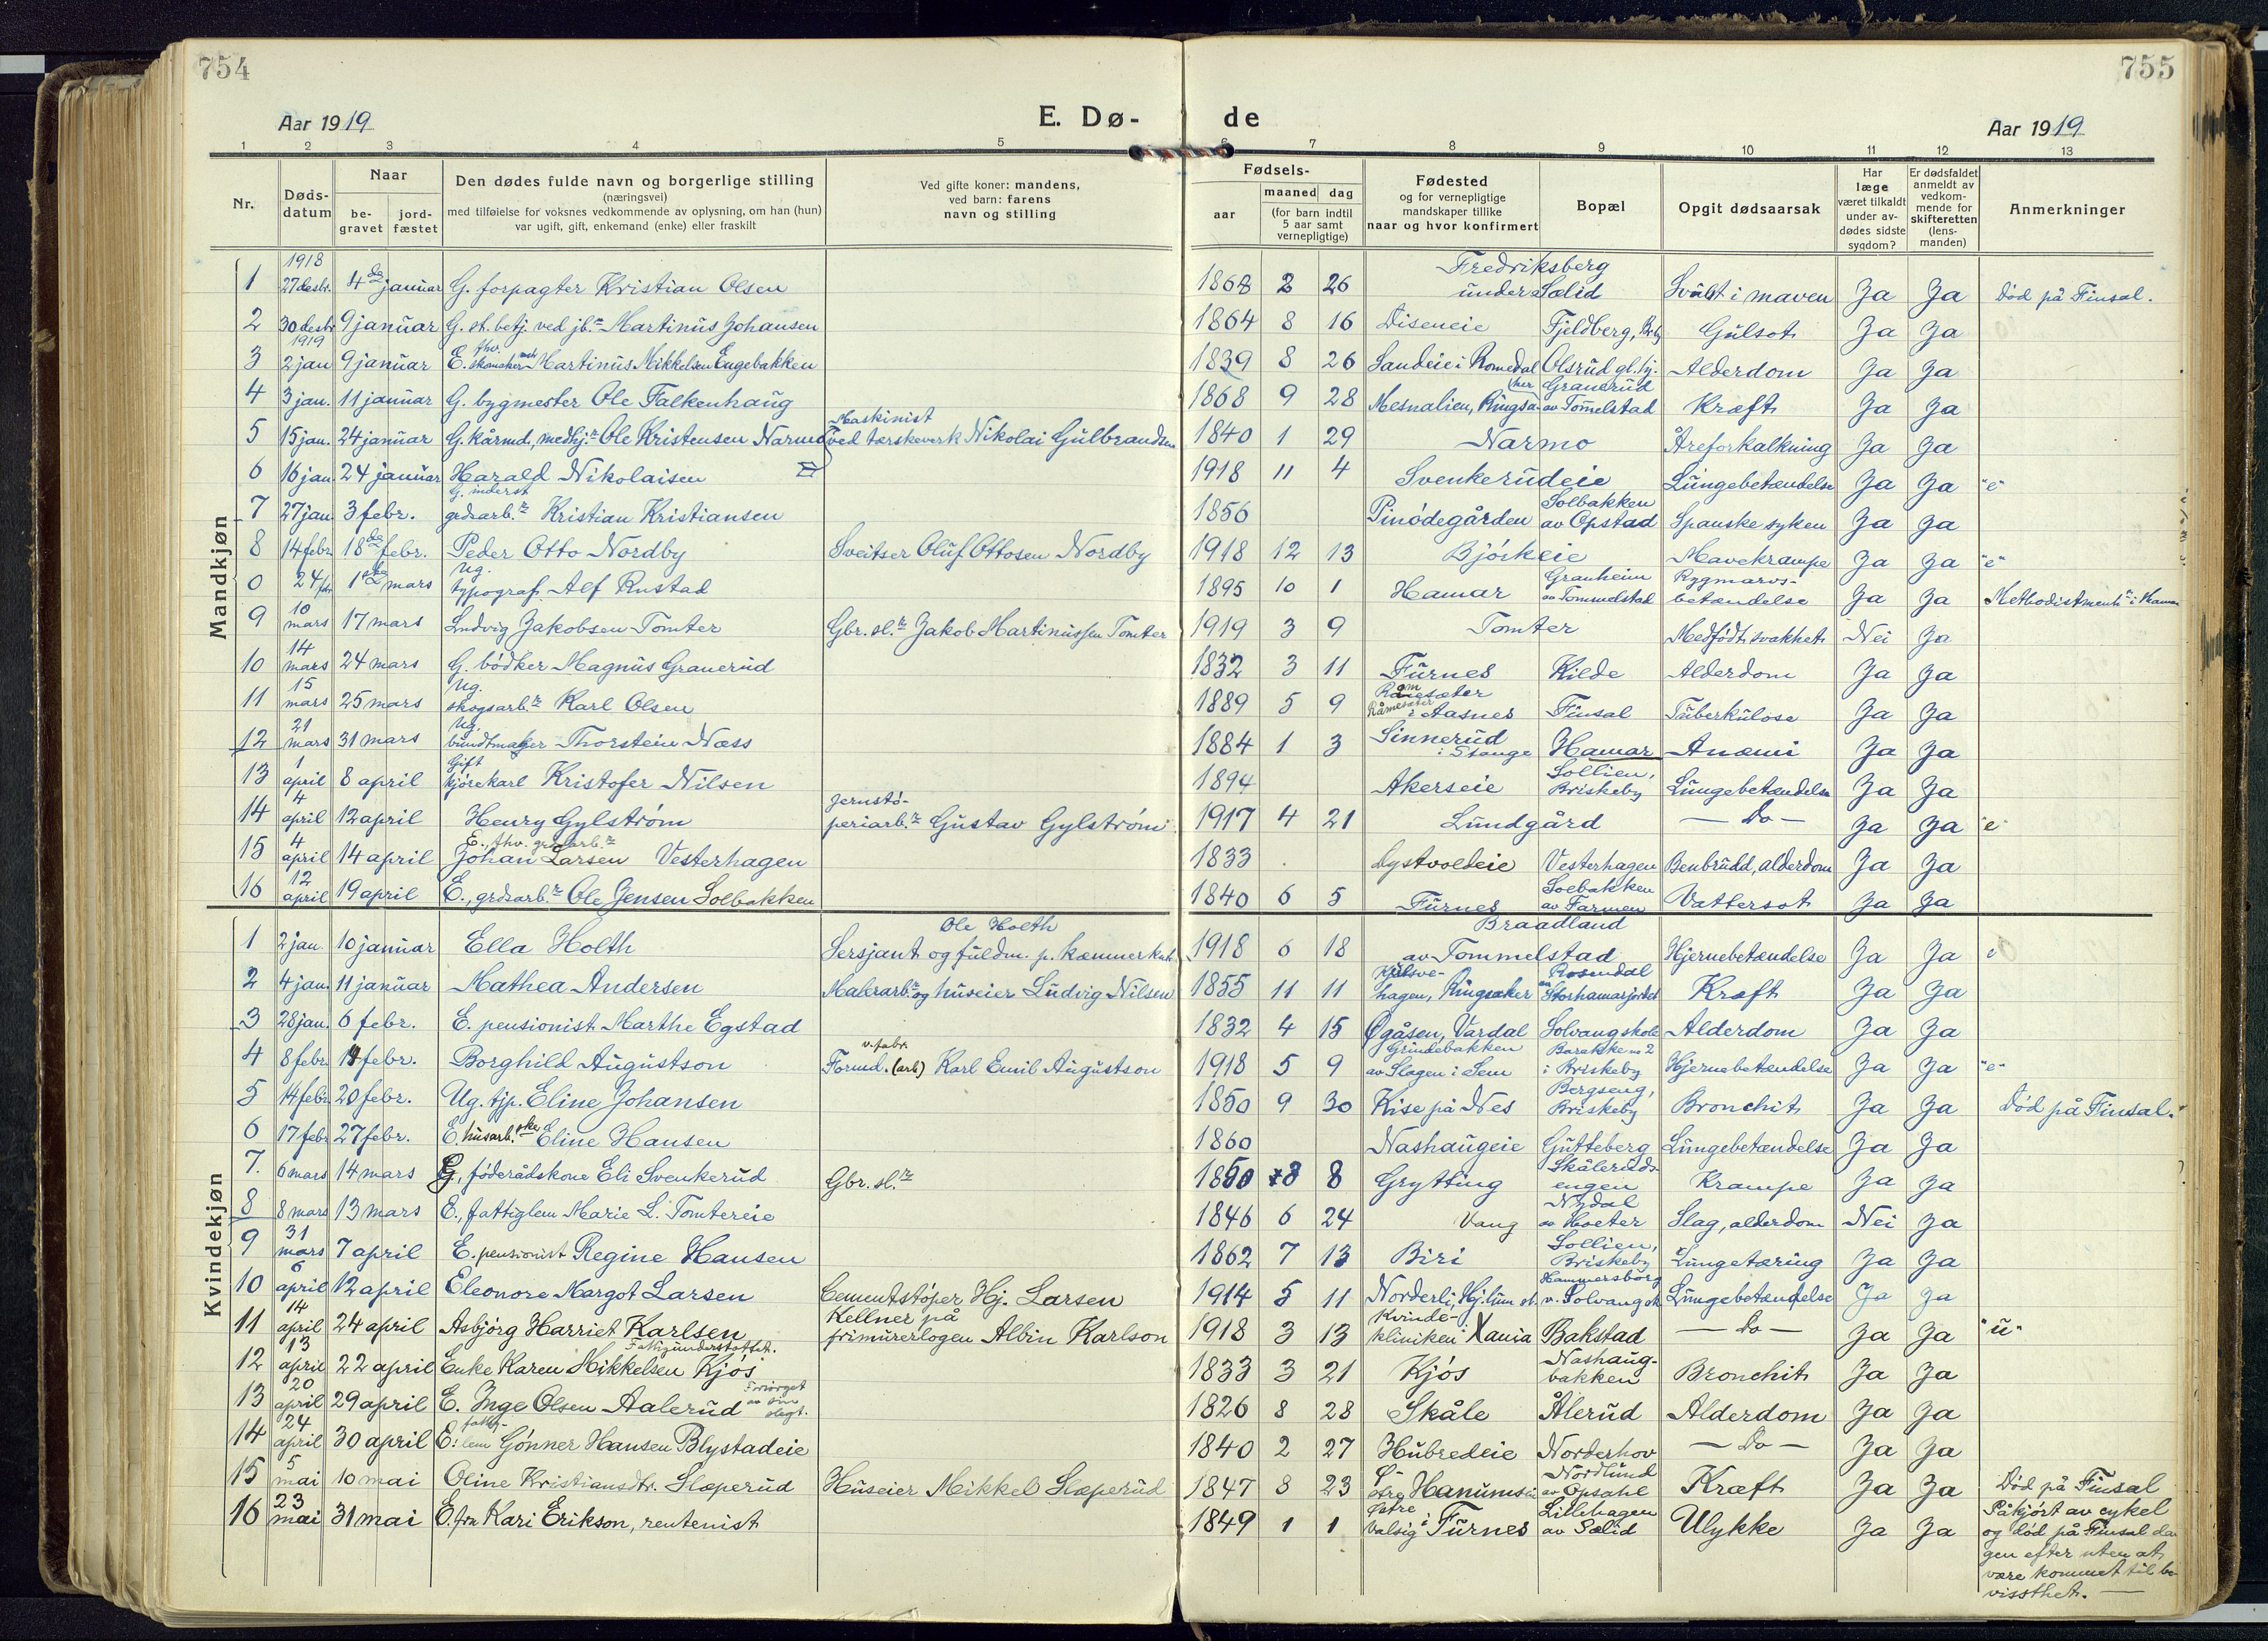 754
755
Aar 1919
E. Dø-
de
Aar 1919
1 2 3 4 5 6 7 8 9 10 11 12 13
Nr.
Døds-
datum
Naar
be-
gravet
jord-
fæstet
Den dødes fulde navn og borgerlige stilling
(næringsvei)
med tilføielse for voksnes vedkommende av oplysning, om han (hun)
var ugift, gift, enkemand (enke) eller fraskilt
Ved gifte koner: mandens,
ved barn: farens
navn og stilling
Fødsels-
aar
maaned dag
(for barn indtil
5 aar samt
vernepligtige)
Fødested
og for vernepligtige
mandskaper tillike
naar og hvor konfirmert
Bopæl
Opgit dødsaarsak
Har
læge
været tilkaldt
under av-
dødes sidste
sygdom?
Er dødsfaldet
anmeldt av
vedkom-
mende for
skifteretten
(lens-
manden)
Anmerkninger
Mandkjøn
1918 Fredriksberg
1 27 desbr. 4de januar G. forpagter Kristian Olsen 1868 2 26 under Sælid i maven Ja Ja Død på Finsal.
2 30 desbr 9 januar G. st. betj. ved jb. Martinus Johansen 1864 8 16 Diseneie Fjeldberg, Gulsot Ja Ja
1919 fhv.
3 2 jan 9 januar E. skomaker Martinus Mikkelsen Engebakken 1839 8 26 Sandeie i Romedal Olsrud gl. hj. Alderdom Ja Ja
Granerud
4 3 jan. 11 januar G. bygmester Ole Falkenhaug 1868 9 28 Mesnalien, Ringsa- av Tommelstad Kræft Ja Ja
Maskinist
5 15 jan. 24 januar G. kårmd, medhj.r Ole Kristensen Narmo ved tærskeverk Nikolai Gulbrandsen 1840 1 29 Narmo Åreforkalkning Ja Ja
6 16 jan. 24 januar Harald Nikolaisen 1918 11 4 Svenkerudeie Lungebetændelse Ja Ja "e"
G. inderst Solbakken
7 27 jan 3 febr. grdsarb.r Kristian Kristiansen 1856 Pinødegården av Opstad Spanske syken Ja Ja
8 14 febr 18de febr. Peder Otto Nordby Sveitser Oluf Ottosen Nordby 1918 12 13 Bjørkeie Mavekrampe Ja Ja "e"
Ug. Granheim Rygmarvs-
0 24/ 1ste mars typograf Alf Rustad 1895 10 1 Hamar av Tommelstad betændelse Ja Ja Methodistmenh. i Hamar
9 10 mars 17 mars Ludvig Jakobsen Tomter Gbr. sl.r Jakob Martinussen Tomter 1919 3 9 Tomter Medfødt svakhet Nei Ja
10 14 mars 24 mars G. bødker Magnus Granerud 1832 3 11 Furnes Kilde Alderdom Ja Ja
Ug.
11 15 mars 25 mars skogsarb.r Karl Olsen 1889 5 9 Råmesæter i Aasnes Finsal Tuberkulose Ja Ja
Ug.
12 21 mars 31 mars bundtmager Thorstein Næss 1884 1 3 Sinnerud i Stange Hamar Anæmi Ja Ja
Gift Sollien,
13 1 april 8 april kjørekarl Kristofer Nilsen 1894 Akerseie Briskeby Lungebetændelse Ja Ja
Jernstø-
14 4 april 12 april Henry Gylstrøm periarb.r Gustav Gylstrøm 1917 4 21 Lundgård — Do — Ja Ja "e"
E., fhv. grdsarb.r
15 4 april 14 april Johan Larsen Vesterhagen 1833 Lystvoldeie Vesterhagen Benbrudd, alderdom Ja Ja
Solbakken
16 12 april 19 april E., grdsarb.r Ole Jensen Solbakken 1840 6 5 Furnes av Farmen Vattersot Ja Ja
Kvindekjøn
Ole Holth Braadland
1 2 jan 10 januar Ella Holth Sersjant og fuldm. p. kæmnerkont. 1918 6 18 av Tommelstad Hjernebetændelse Ja Ja e
Rosendal
2 4 jan 11 januar Mathea Andersen Malerarb.r og huseier Ludvig Nilsen 1855 11 11 hagen, Ringsaker Storhamarjordet Kræft Ja Ja
3 28 jan. 6 febr. E. pensionist Marthe Egstad 1832 4 15 Øgåsen, Vardal Solvang skole Alderdom Ja Ja
v. fabr. Grindebakken Barakke no 2
4 8 febr 14 febr. Borghild Augustson Formd. (arb) Karl Emil Augustson 1918 5 9 av Slagen i Sem i Briskeby Hjernebetændelse Ja Ja "e"
Bergseng,
5 14 febr 20 febr. Ug. tjp. Eline Johansen 1850 9 30 Kise på Nes Briskeby Bronchit Ja Ja Død på Finsal.
6 17 febr 27 febr. E. husarb.ske Eline Hansen 1860 Nashaugeie Gutteberg Lungebetændelse Ja Ja
Skålerud-
7. 6 mars 14 mars G, føderådskone Eli Svenkerud Gbr. sl.r 1850 8 8 Grytting engen Krampe Ja Ja
Nydal
8 8 mars 13 mars E., fattiglem Marie L. Tomtereie 1846 6 24 Vang av Hoeter Slag, alderdom Nei Ja
Sollien,
9 31 mars 7 april E. pensionist Regine Hansen 1862 7 13 Biri Briskeby Lungetæring Ja Ja
Hammersborg
10 6 april 12 april Eleonore Margot Larsen Cementstøper Hj. Larsen 1914 5 11 Norderli, Hjellum st. v. Solvang sk. Lungebetændelse Ja Ja
Kellner på Kvinde-
11 14 april 24 april Asbjørg Harriet Karlsen frimurerlogen Albin Karlson 1918 3 13 kliniken Xania Bakstad — Do — Ja Ja "u"
Fattigunderstøttet. Nashaug-
12 13 april 22 april Enke Karen Mikkelsen Kjøs 1833 3 21 Kjøs bakken Bronchit Ja Ja
Forsørget av sin slegt.
13 20 april 29 april E. Inge Olsen Aalerud 1826 8 28 Skåle Ålerud Alderdom Ja Ja
fattig-
14 24 april 30 april E. lem Gønner Hansen Blystadeie 1840 2 27 Hubredeie Norderhov — Do — Ja Ja
Nordlund
15 5 mai 10 mai Oline Kristiansdtr. Slæperud Huseier Mikkel Slæperud 1847 8 23 Hanumseie av Opsahl Kræft Ja Ja Død på Finsal
Lillehagen
16 23 mai 31 mai E. fru Kari Erikson, rentenist 1849 1 1 Valsig i Furnes av Sælid Ulykke Ja Ja Påkjørt av cykel
og død på Finsal da-
gen efter uten at
være kommet til be-
vissthet. —